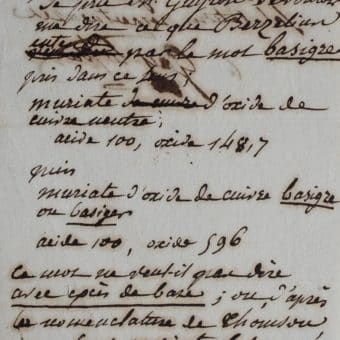 Je prie M. Guyton de
me dire ce que Berzelius
par le mot basigre
pris dans ce sens;
muriate d'oxide de
cuivre neutre;
acide 100, oxide 148,7
puis
muriate d'oxide de cuivre basigre
ou basiger
acide 100, oxide 596
ce mot ne veut-il pas dire
avec excès de base; ou, d'après
la nomenclature de Thomson,